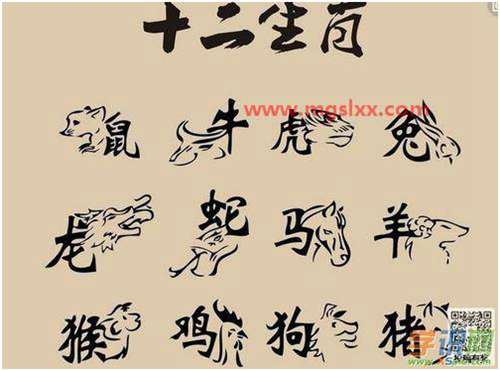 十二生肖
www.mgslxx.com
鼠 牛 虎 兔
龙 蛇 马 羊
猴 鸡 狗 猪